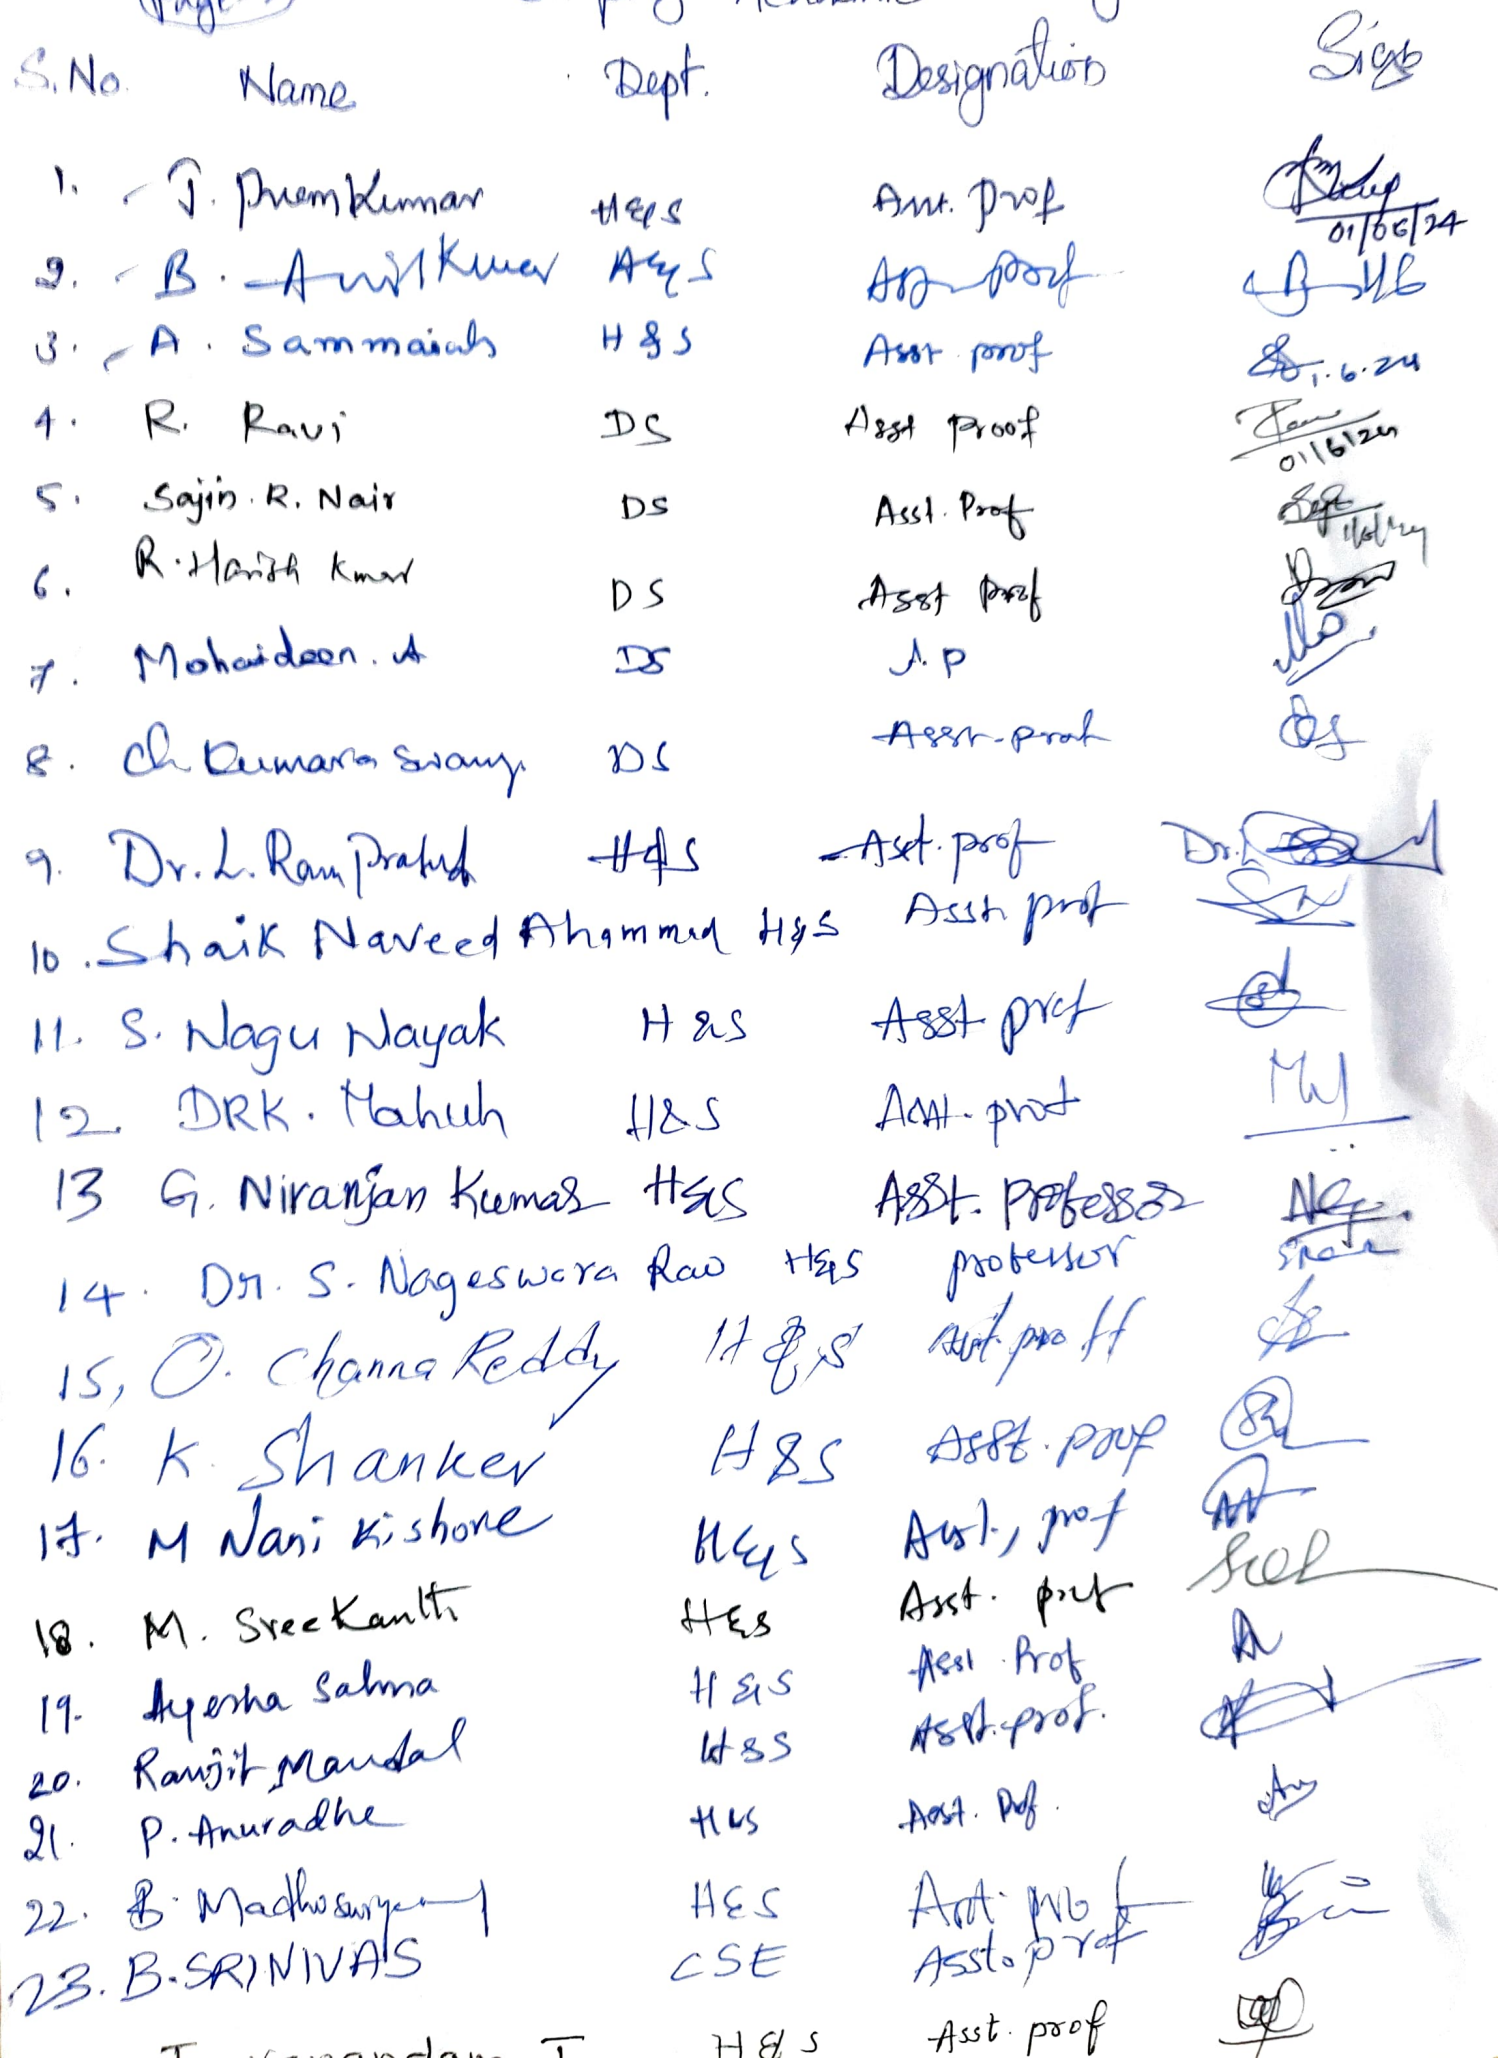 S.No. Name Dept. Designation Sign
1. J. PremKumar H&S Asst. Prof 01/06/24
2. B. AnilKumar H&S Asst prof
3. A. Sammaiah H&S Asst prof 1.6.24
4. R. Ravi DS Asst Proof 01/6/24
5. Sajin. R. Nair DS Asst. Prof
6. R. Harish Kumar DS Asst Prof
7. Mohaideen. A DS A.P
8. Ch Kumara Swamy DS Asst-prof
9. Dr. L. Ram Prasad H&S Asst. prof Dr.
10. Shaik Naveed Ahammed H&S Asst prof
11. S. Nagu Nayak H&S Asst prof
12. DRK. H&S Asst. prof
13 G. Niranjan Kumar H&S Asst. Professor
14. Dr. S. Nageswara Rao H&S professor
15, O. Channa Reddy H&S Asst. proff
16. K. Shanker H&S Asst. prof
17. M Nani Kishore H&S Asst, prof
18. M. SreeKanth H&S Asst. prof
19. Ayesha Salma H&S Asst. Prof
20. Ranjit Mandal H&S Asst. prof.
21. P. Anuradha H&S Asst. Prof.
22. B. H&S Asst. prof
23. B. SRINIVAS CSE Asst. prof
H&S Asst. prof